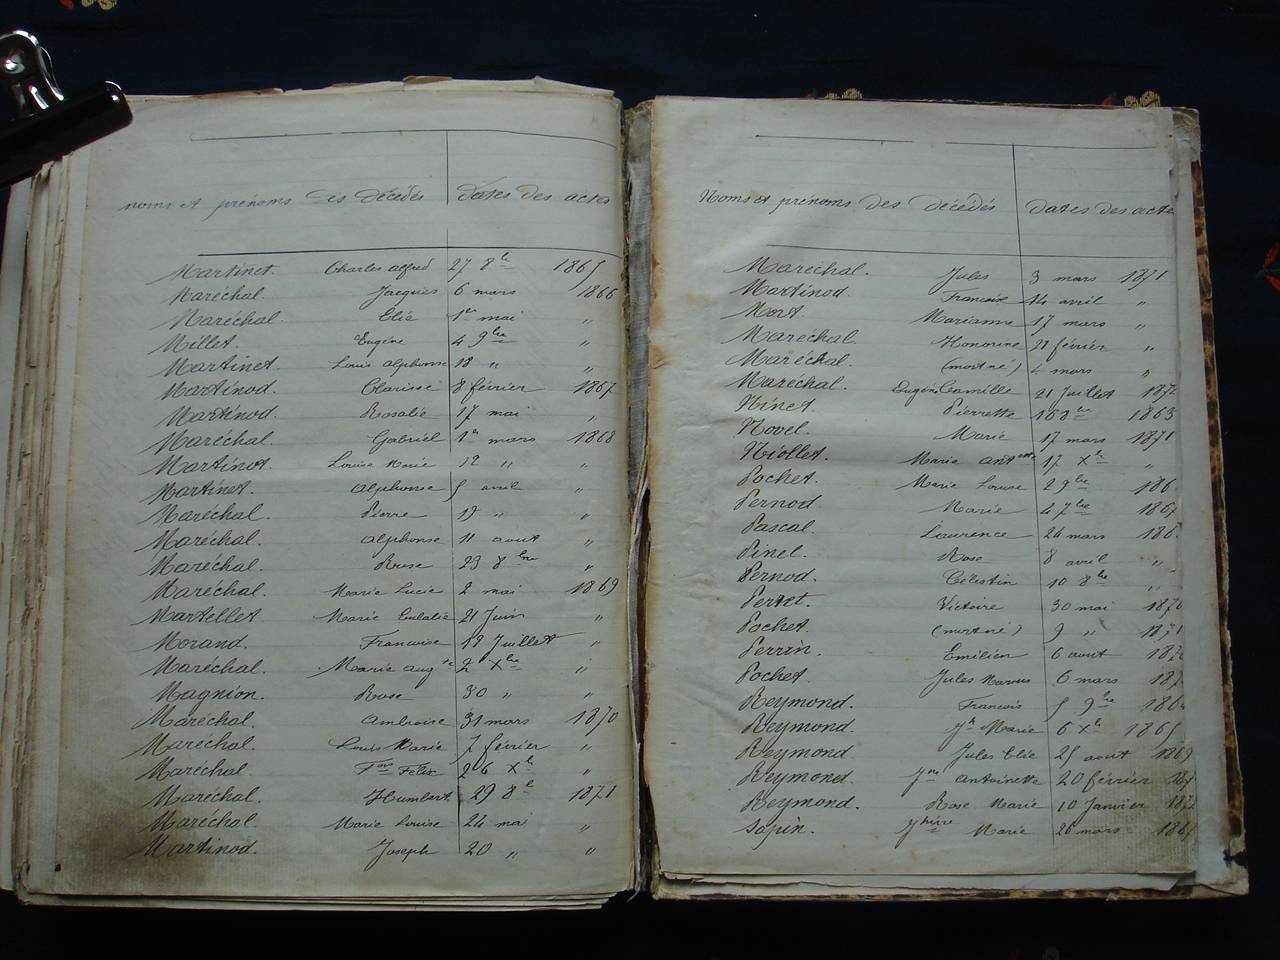 noms et prénoms des décédés dates des actes
Martinet. Charles alfred 27 8bre 1865
Maréchal. Jacques 6 mars 1866
Maréchal. Elie 1er mai "
Millet. Eugène 4 9bre "
Martinet. Louis alphonse 18 " "
Martinod. Clarisse 8 février 1867
Martinod. Rosalie 17 mai "
Maréchal. Gabriel 1er mars 1868
Martinot. Louise Marie 12 " "
Martinet. alphonse 5 avril "
Maréchal. Pierre 19 " "
Maréchal. alphonse 11 aout "
Maréchal. Rose 23 8bre "
Maréchal. Marie Lucie 2 mai 1869
Martellet. Marie Eulalie 21 Juin "
Morand. Francoise 19 Juillet "
Maréchal. Marie augte 2 Xbre "
Magnion. Rose 30 " "
Maréchal. Ambroise 31 mars 1870
Maréchal. Louis Marie 7 février "
Maréchal. Fois Félix 26 Xbre "
Maréchal. Humbert 29 8e 1871
Maréchal. Marie Louise 24 mai "
Martinod. Joseph 20 " "
Noms et prénoms des décédés dates des acte
Maréchal. Jules 3 mars 1871
Martinod. Francoise 14 avril "
Mort. Marianne 17 mars "
Maréchal. Honorine 21 février "
Maréchal. (mort né) 4 mars "
Maréchal. Eugène Camille 21 Juillet 1872
Ninet. Pierrette 16 8bre 1863
Novel. Marie 17 mars 1871
Niollet. Marie antette 17 Xbre "
Pochet. Marie Louise 2 9bre 186
Pernod. Marie 4 7bre 1867
Pascal. Laurence 24 mars 186
Pinel. Rose 8 avril "
Pernod. Célestin 10 8bre "
Pertet. Victoire 30 mai 1870
Pochet. (mort né) 9 " 1871
Perrin. Emilien 6 aout 187
Pochet. Jules Marius 6 mars 187
Reymond. Francois 5 9bre 186
Reymond. Jh Marie 6 Xbre 1865
Reymond Jules Elie 25 aout 1869
Reymond. antoinette 20 février 187
Reymond. Rose Marie 10 Janvier 1872
Sapin. Marie 26 mars 186